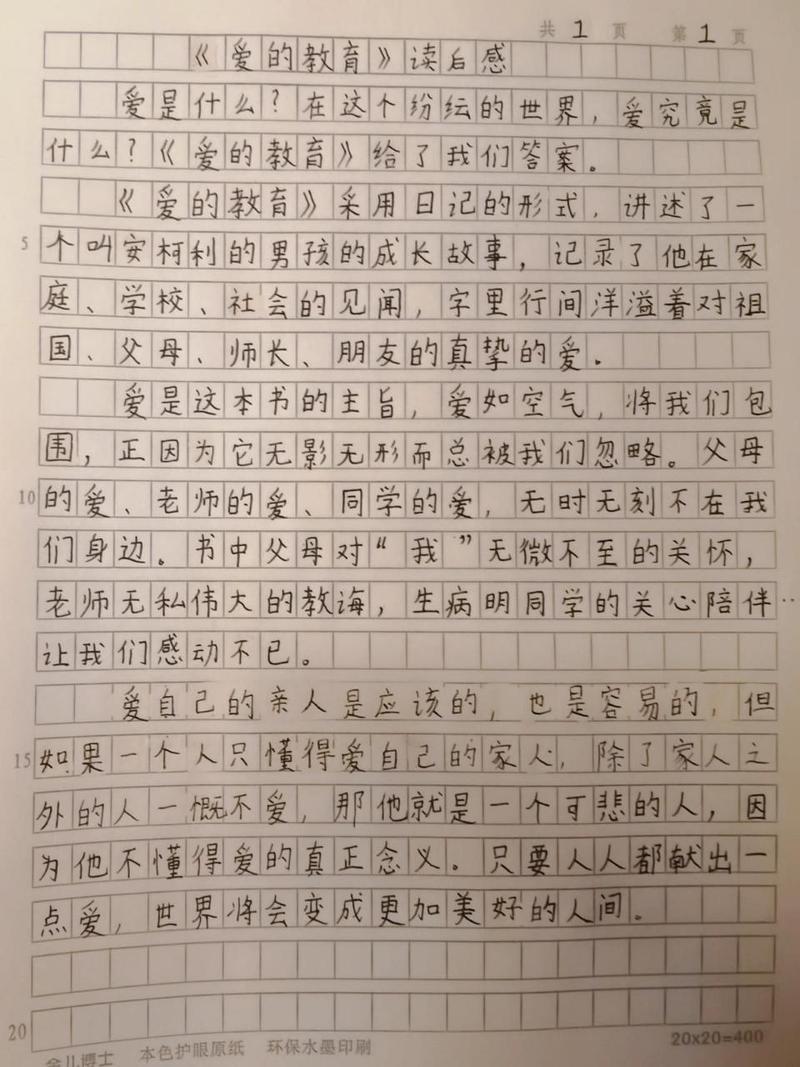 共 1 页 第 1 页
《爱的教育》读后感
爱是什么?在这个纷纭的世界,爱究竟是
什么?《爱的教育》给了我们答案。
《爱的教育》采用日记的形式,讲述了一
5 个叫安柯利的男孩的成长故事,记录了他在家
庭、学校、社会的见闻,字里行间洋溢着对祖
国、父母、师长、朋友的真挚的爱.
爱是这本书的主旨,爱如空气,将我们包
围,正因为它无影无形而总被我们忽略。父母
10 的爱、老师的爱、同学的爱,无时无刻不在我
们身边.书中父母对“我”无微不至的关怀,
老师无私伟大的教诲,生病明同学的关心陪伴‥
让我们感动不已。
爱自己的亲人是应该的,也是容易的,但
15 如果一个人只懂得爱自己的家人,除了家人之
外的人一慨不爱,那他就是一个可悲的人,因
为他不懂得爱的真正念义.只要人人都献出一
点爱,世界将会变成更加美好的人间.
20
20x20=400
金儿博士 本色护眼原纸 环保水墨印刷